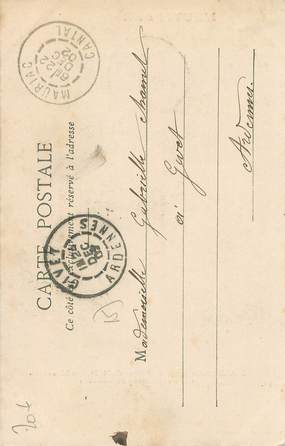 CARTE POSTALE
Ce côté est exclusivement réservé à l'adresse
MAURIAC
CANTAL
DEC
02
GIVET
ARDENNES
DEC
Mademoiselle Gabrielle
à Givet
Ardennes